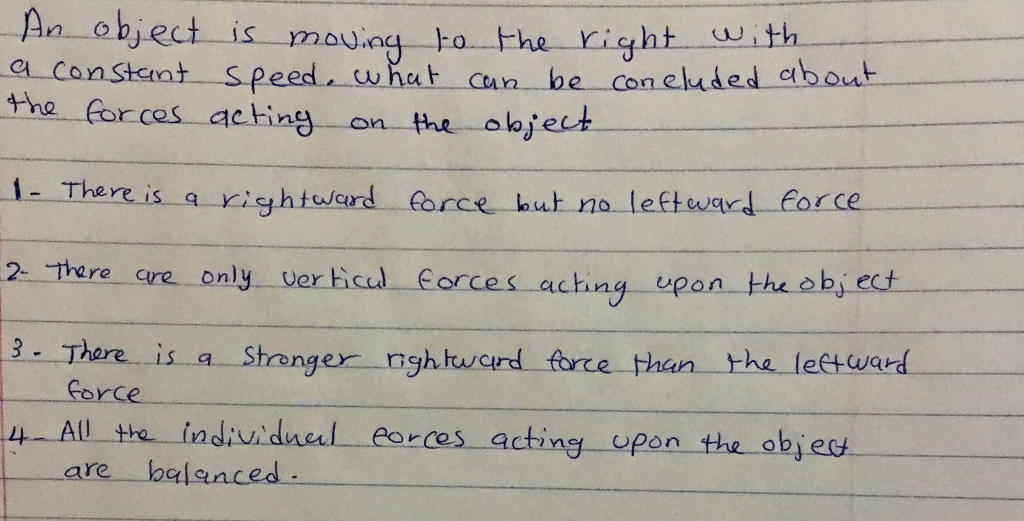 An object is moving to the right with
a constant speed. what can be concluded about
the forces acting on the object
1- There is a rightward force but no leftward force
2- There are only vertical forces acting upon the object
3- There is a stronger rightward force than the leftward
force
4- All the individual forces acting upon the object
are balanced.